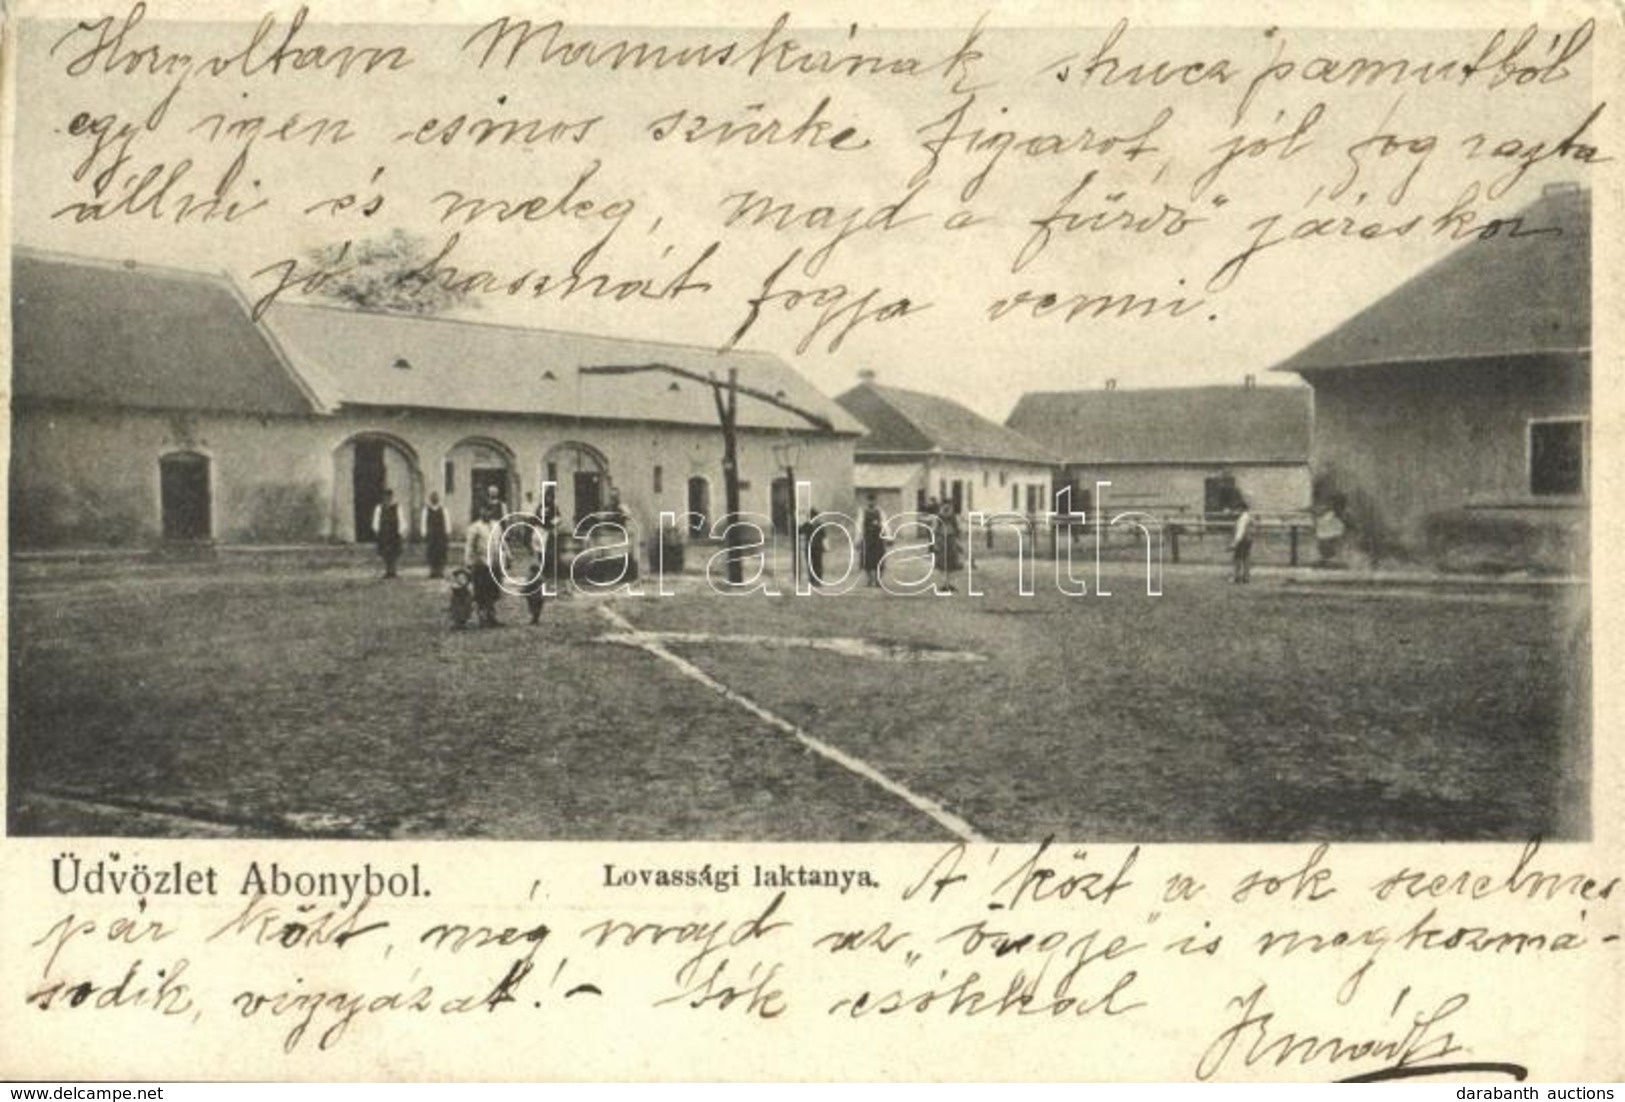 Horgoltam Mamuskának stucz pamutból
egy igen csinos szürke figarot, jól fog rajta
állni és meleg, majd a fürdő járáskor
jó hasznát fogja venni.
darabanth
Üdvözlet Abonybol. Lovassági laktanya. A' közt a sok szerelmes
pár közt, még majd az „öregje" is megkozmá-
sodik, vigyázat! – Sok csókkal
darabanth.com
darabanth auctions